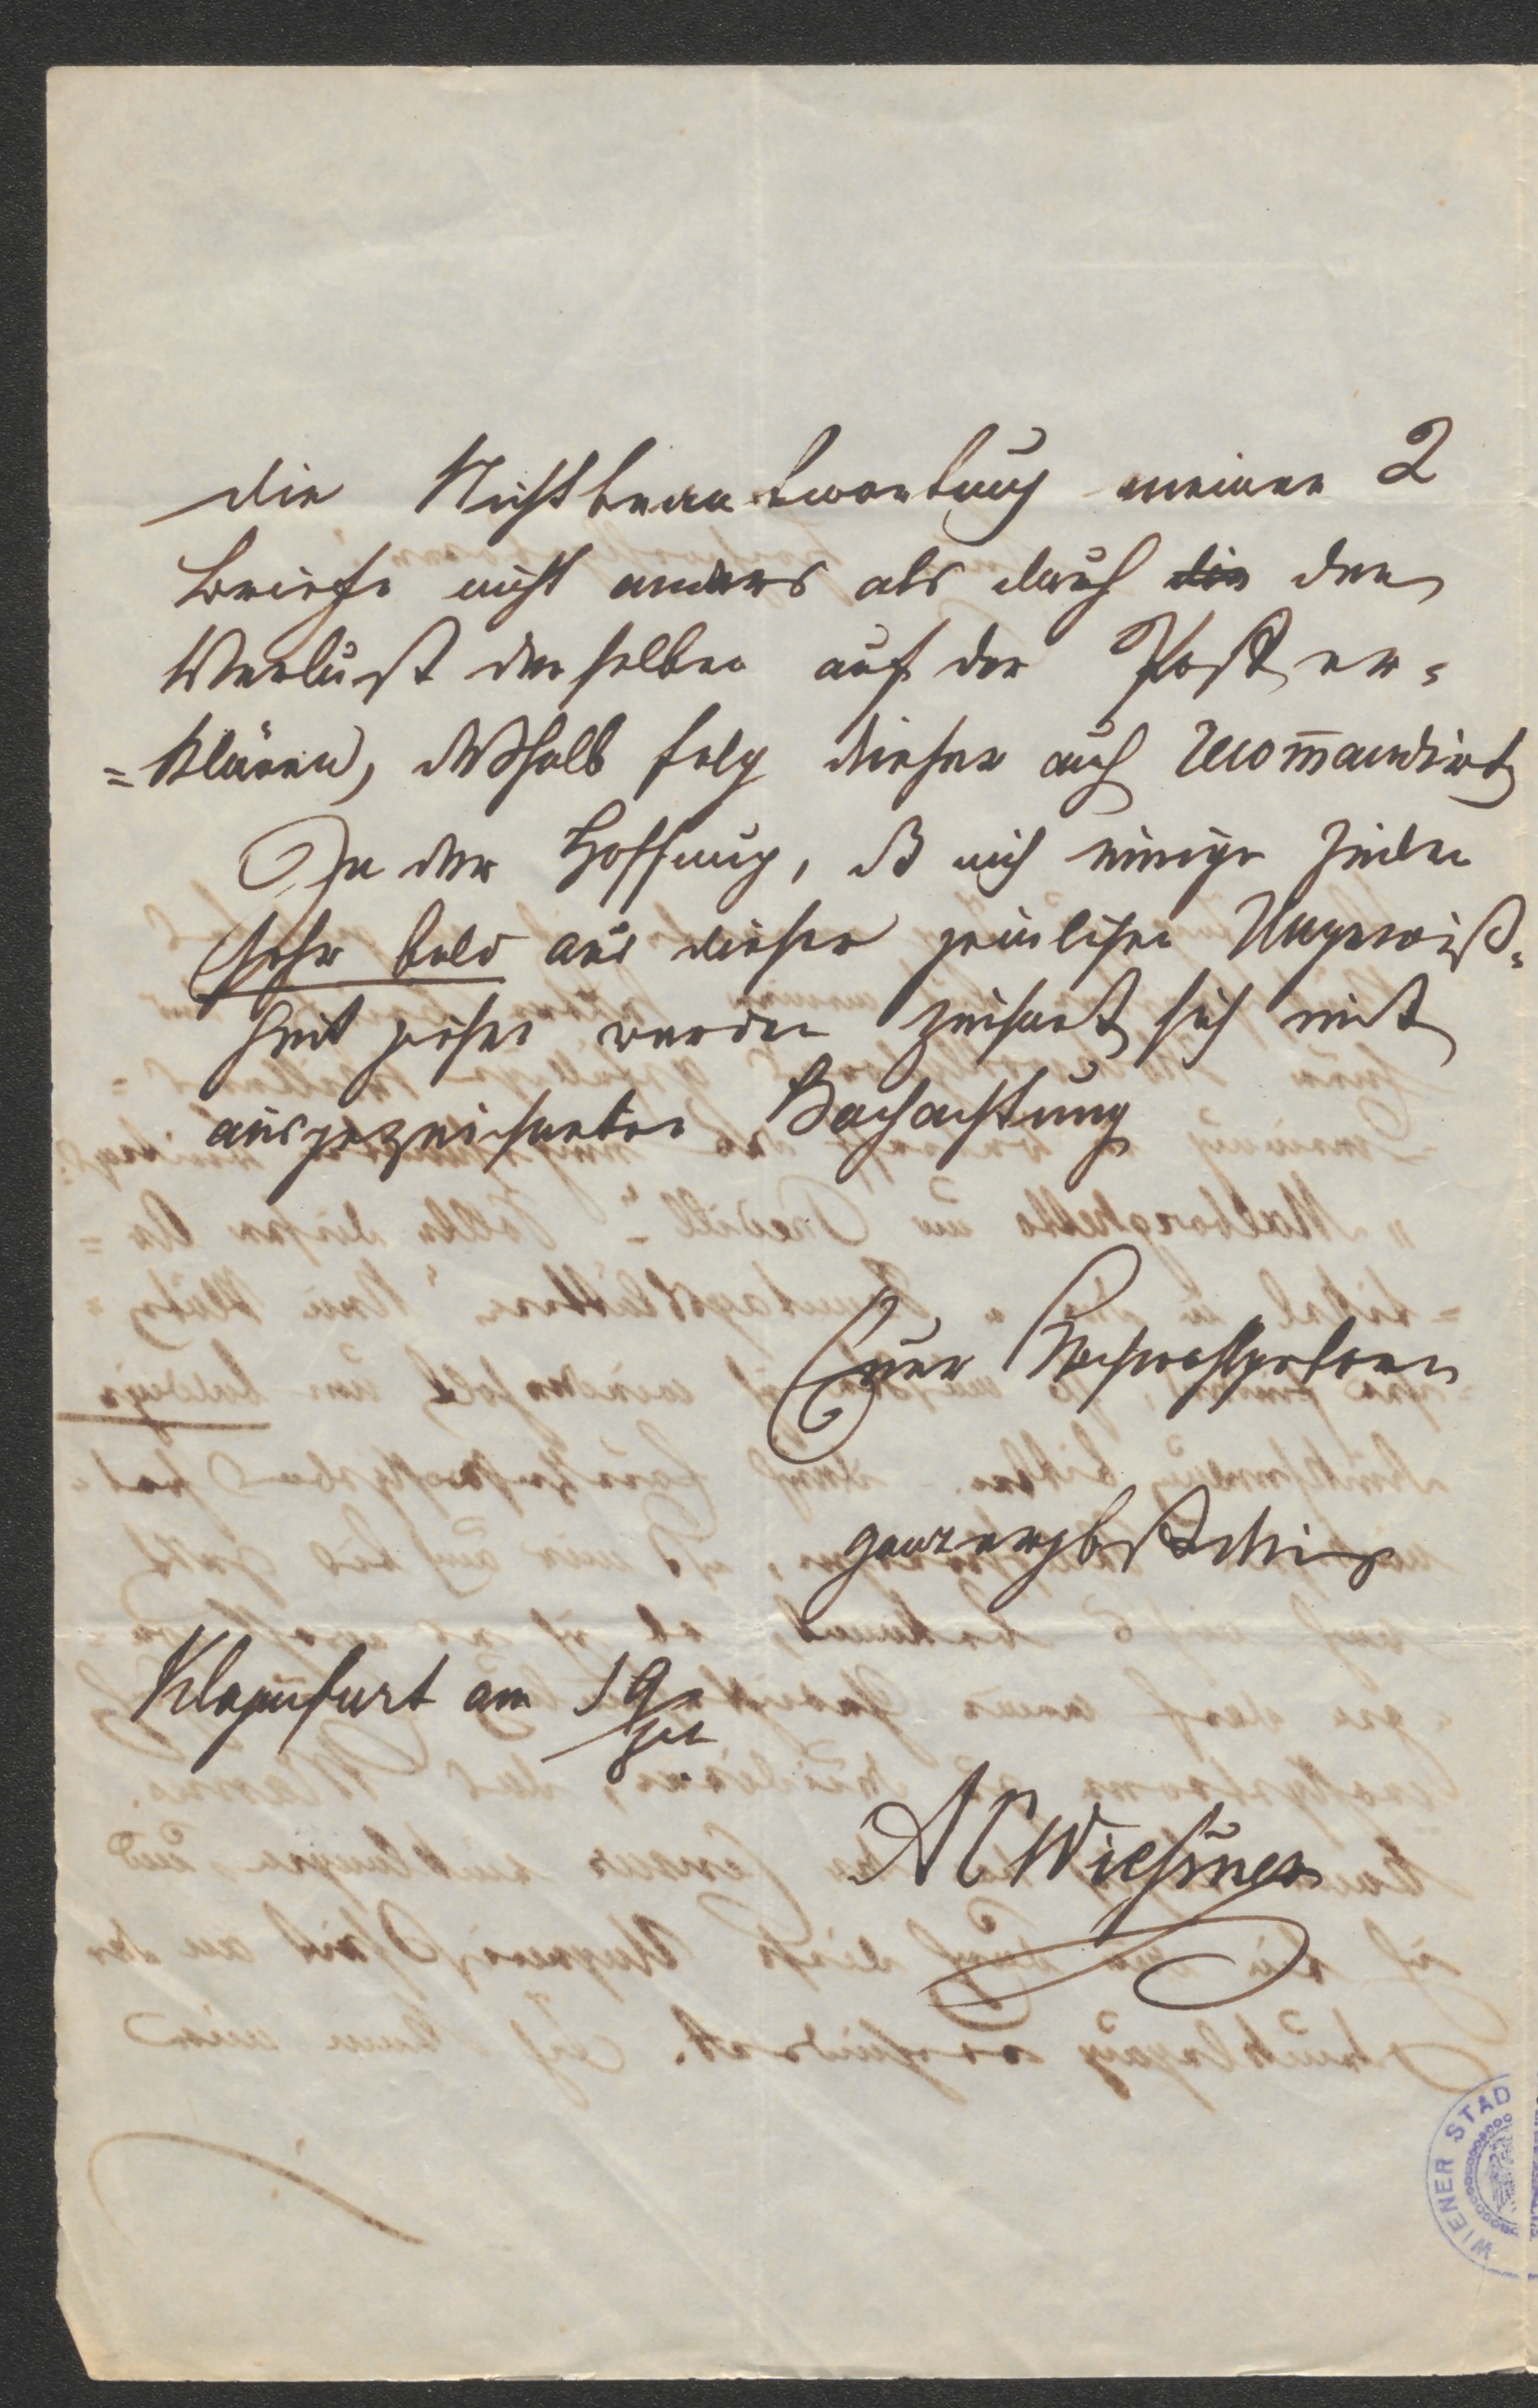 die Nichtbeantwortung meiner 2
Briefe nicht anders als durch die den
Verlust derselben auf der Post er=
=klären, deßhalb folg dieser auch recomandirt
In der Hoffnung, dß mich einige Zeilen
sehr bald aus dieser peinlichen Ungewiß=
heit ziehen werden zeichnet sich mit
ausgezeichneter Hochachtung
Euer Hochwohlgeboren
ganz ergebenster
Klagenfurt am 19
A C Wiesner
WIENER STAD